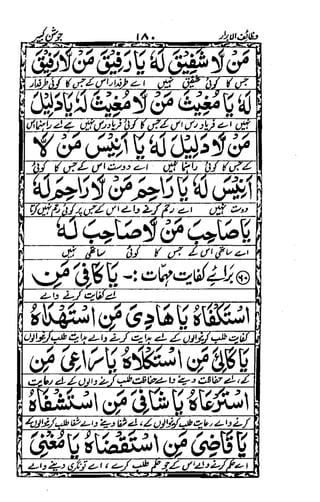 وظائف الابرار ۱۸۰ جوشن کبیر
مَنْ لَا شَفِيْقَ لَهُ يَا رَفِيْقَ مَنْ لَا رَفِيْقَ
جس کا کوئی شفیق نہیں اے طرفدار اس کے جس کا کوئی طرفدار
لَهُ يَا مُغِيْثَ مَنْ لَا مُغِيْثَ لَهُ يَا دَلِيْلَ
نہیں اے فریادرس اس کے جس کا کوئی فریادرس نہیں اے راہنما اس
مَنْ لَا دَلِيْلَ لَهُ يَا اَنِيْسَ مَنْ لَا
کے جس کا کوئی راہنما نہیں اے دوست اس کے جس کا کوئی
اَنِيْسَ لَهُ يَا رَاحِمَ مَنْ لَا رَاحِمَ لَهُ
دوست نہیں اے رحم کرنے والے اس کے جس پر کوئی رحم نہیں کرتا
يَا صَاحِبَ مَنْ لَا صَاحِبَ لَهُ
اے ساتھی اس کے جس کا کوئی ساتھی نہیں
(۶۰) برائے کفایت مہمات :- يَا كَافِيَ مَنِ
اے کفایت کرنے والے
اسْتَكْفَاهُ يَا هَادِيَ مَنِ اسْتَهْدَاهُ
کفایت طلب کرنیوالوں کے اے ہدایت کرنے والے ہدایت طلب کرنیوالوں
يَا كَالِئَ مَنِ اسْتَكْلَاهُ يَا رَاعِيَ مَنِ
کے اے حفاظت دینے والے حفاظت طلب کرنے والوں کے اے رعایت
اسْتَرْعَاهُ يَا شَافِيَ مَنِ اسْتَشْفَاهُ
کرنے والے رعایت طلب کرنیوالوں کے اے شفا دینے والے شفا طلب کرنیوالوں کے
يَا قَاضِيَ مَنِ اسْتَقْضَاهُ يَا مُغْنِيَ
اے حکم کرنے والے اس کے جو حکم طلب کرے اے تونگری دینے والے